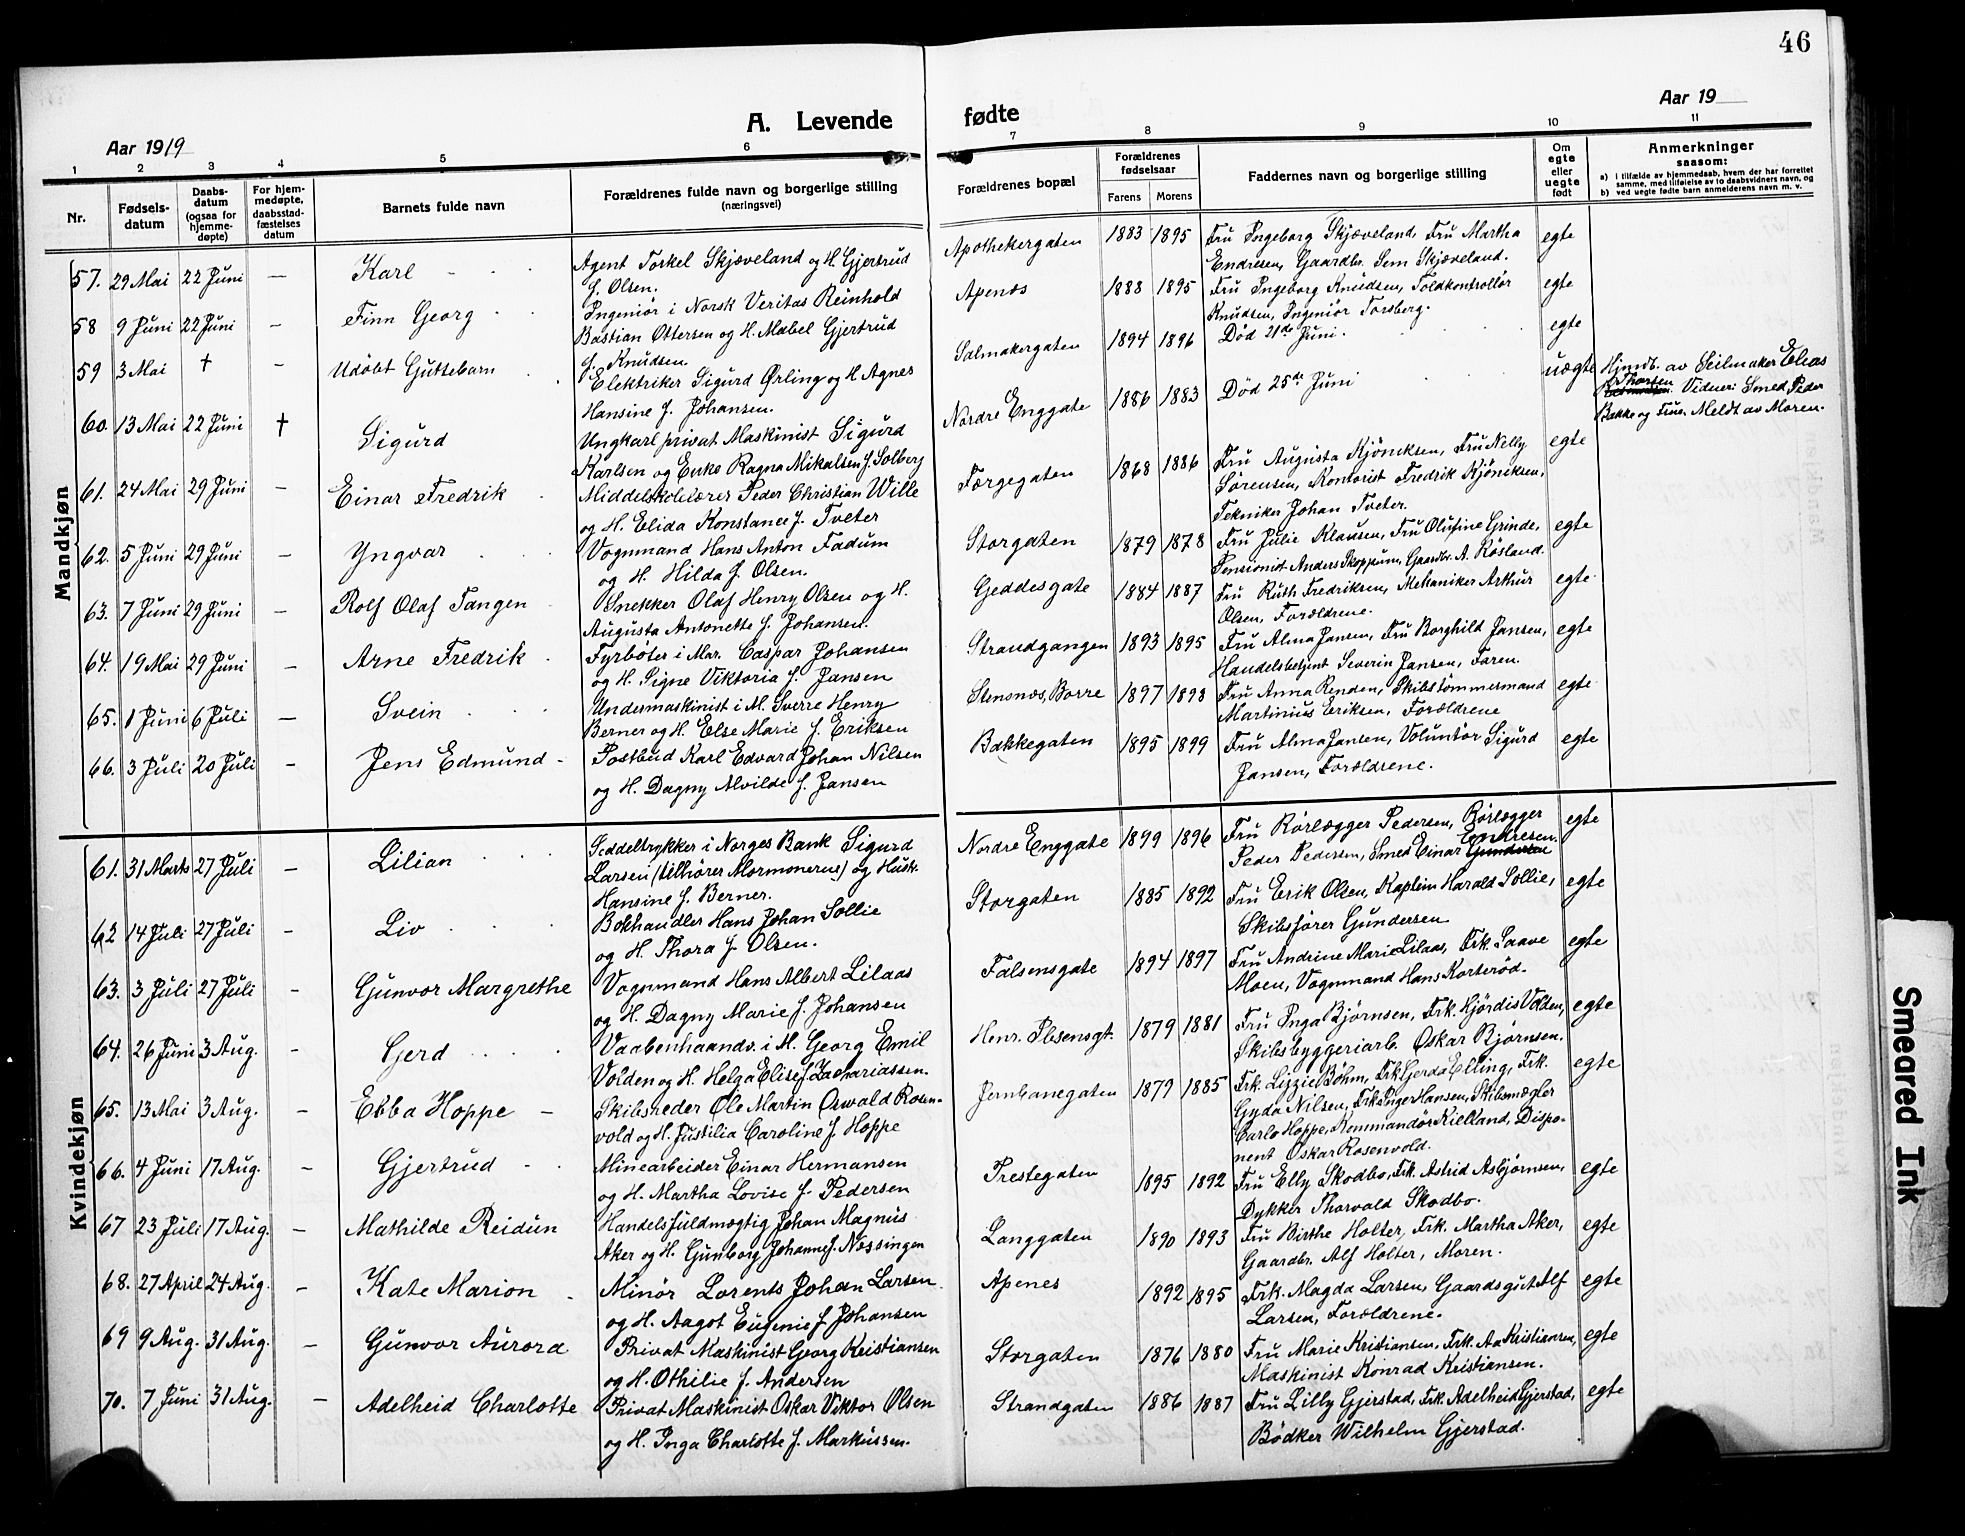 46
A. Levende fødte
Aar 1919
Aar 19
1 2 3 4 5 6 7 8 9 10 11
Nr.
Fødsels-
datum
Daabs-
datum
(ogsaa for
hjemme-
døpte)
For hjem-
medøpte,
daabsstad-
fæstelses
datum
Barnets fulde navn
Forældrenes fulde navn og borgerlige stilling
(næringsvei)
Forældrenes bopæl
Forældrenes
fødselsaar
Farens Morens
Faddernes navn og borgerlige stilling
Om
egte
eller
uegte
født
Anmerkninger
saasom:
a) i tilfælde av hjemmedaab, hvem der har forrettet
samme, med tilføielse av to daabsvidners navn, og
b) ved uegte fødte barn anmelderens navn m. v.
Mandkjøn
57. 29 Mai 22 Juni — Karl
Agent Torkel Skjæveland og H. Gjertrud
f. Olsen.
Apothekergaten 1883 1895
Fru Ingeborg Skjæveland, Fru Martha
Endresen, Gaardbr. Sem Skjæveland.
egte
58 9 Juni 22 Juni — Finn Georg
Ingeniør i Norsk Veritas Reinhold
Bastian Ottersen og H. Mabel Gjertrud
f. Knudsen.
Apenæs 1888 1895
Fru Ingeborg Knudsen, Toldkontrollør
Knudsen, Ingeniør Torsberg.
egte
59 3 Mai † — Udöbt Guttebarn
Elektriker Sigurd Ørling og H Agnes
Hansine f. Johansen.
Salmakergaten 1894 1896
Død 21de Juni.
egte
60. 13 Mai 22 Juni † Sigurd
Ungkarl privat Maskinist Sigurd
Karlsen og Enke Ragna Mikalsen f. Solberg
Nordre Enggate 1886 1883
Død 25de Juni
uægte
Hjmdt. av Seilmaker Elias
Thorsen. Vidner: Smed Peder
Bakke og Frue. Meldt av Moren.
61. 24 Mai 29 Juni — Einar Fredrik
Middelskolelærer Peder Christian Wille
og H. Elida Konstance f. Tveter
Færgegaten 1868 1886
Fru Augusta Kjöniksen, Fru Nelly
Sörensen, Kontorist Fredrik Kjöniksen,
Tekniker Johan Tveter.
egte
62. 5 Juni 29 Juni — Yngvar
Vognmand Hans Anton Fadum
og H. Hilda f. Olsen.
Storgaten 1879 1878
Fru Julie Klausen, Fru Olufine Grinde,
Pensionist Anders Skoppum, Gaardbr. A. Rösland.
egte
63. 7 Juni 29 Juni — Rolf Olaf Tangen
Snekker Olaf Henry Olsen og H.
Augusta Antonette f. Johansen.
Geddesgate 1884 1887
Fru Ruth Fredriksen, Mekaniker Arthur
Olsen, Forældrene.
egte
64. 19 Mai 29 Juni — Arne Fredrik
Fyrböter i Mar. Caspar Johansen
og H. Signe Viktoria f. Jansen
Strandgangen 1893 1895
Fru Alma Jansen, Fru Borghild Jansen,
Handelsbetjent Severin Jansen, Faren.
egte
65. 1 Juni 6 Juli — Svein
Undermaskinist i M. Sverre Henry
Berner og H. Else Marie f. Eriksen
Stensnæs, Borre 1897 1898
Fru Anna Renden, Skibstömmermand
Martinius Eriksen, Forældrene
egte
66. 3 Juli 20 Juli — Jens Edmund
Postbud Karl Edvard Johan Nilsen
og H. Dagny Alvilde f. Jansen
Bakkegaten 1895 1899
Fru Alma Jansen, Voluntör Sigurd
Jansen, Forældrene.
egte
Kvindekjøn
61. 31 Marts 27 Juli — Lilian
Seddeltrykker i Norges Bank Sigurd
Larsen (tilhører Mormonerne) og Hust.
Hansine f. Berner.
Nordre Enggate 1899 1896
Fru Rörlægger Pedersen, Rörlægger
Peder Pedersen, Smed Einar Gundersen Endresen.
egte
62 14 Juli 27 Juli — Liv
Bokhandler Hans Johan Sollie
og H. Thora f. Olsen.
Storgaten 1885 1892
Fru Erik Olsen, Kaptein Harald Sollie,
Skibsförer Gundersen
egte
63. 3 Juli 27 Juli — Gunvor Margrethe
Vognmand Hans Albert Lilaas
og H. Dagny Marie f. Johansen
Falsensgate 1894 1897
Fru Andrine Marie Lilaas, Frk. Saave
Moen, Vognmand Hans Korterød.
egte
64. 26 Juni 3 Aug. — Gerd
Vaabenhaandv. i M. Georg Emil
Volden og H. Helga Elise f. Zachariassen.
Henr. Ibsensgt. 1879 1881
Fru Inga Bjørnsen, Frk. Hjördis Volden,
Skibsbyggeriarb. Oskar Bjørnsen.
egte
65. 13 Mai 3 Aug. — Ebba Hoppe
Skibsreder Ole Martin Oswald Rosen-
vold og H. Justilia Caroline f. Hoppe
Jernbanegaten 1879 1885
Frk. Lizzie Böhm, Frk Gjerda Elling, Frk.
Gyda Nilsen, Frk. Inger Hansen, Skibsmægler
Carlo Hoppe, Kommandör Kielland, Dispo-
nent Oskar Rosenvold.
egte
66. 4 Juni 17 Aug. — Gjertrud
Minearbeider Einar Hermansen
og H. Martha Lovise f. Pedersen
Prestegaten 1895 1892
Fru Elly Skodbo, Frk. Astrid Asbjørnsen,
Dykker Thorvald Skodbo.
egte
67 23 Juli 17 Aug. — Mathilde Reidun
Handelsfuldmægtig Johan Magnus
Aker og H. Gunborg Johanne f. Næssingen
Langgaten 1890 1893
Fru Birthe Holter, Frk. Martha Aker,
Gaardbr. Alf Holter, Moren.
egte
68. 27 April 24 Aug. — Kate Marion
Minör Lorents Johan Larsen
og H. Aagot Eugenie f Johansen
Apenes 1892 1895
Frk. Magda Larsen, Gaardsgut Alf
Larsen, Forældrene.
egte
69 9 Aug. 31 Aug. — Gunvor Aurora
Privat Maskinist Georg Kristiansen
og H. Othilie f. Andersen
Storgaten 1876 1880
Fru Marie Kristiansen, Frk. Aa Kristiansen,
Maskinist Konrad Kristiansen.
egte
70. 7 Juni 31 Aug. — Adelheid Charlotte
Privat Maskinist Oskar Viktor Olsen
og H. Inga Charlotte f. Markussen.
Strandgaten 1886 1887
Fru Lilly Gjerstad, Frk. Adelheid Gjerstad,
Bödker Wilhelm Gjerstad.
egte
Smeared Ink